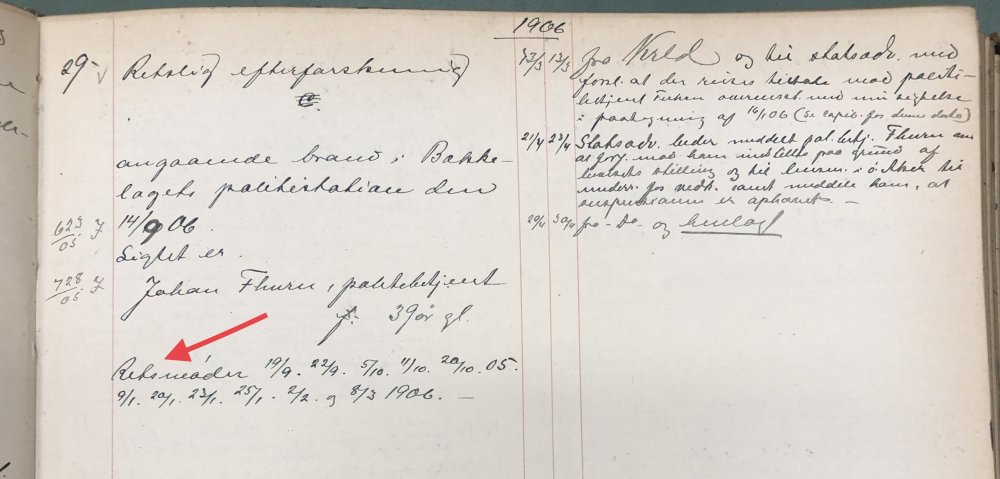 1906
29
Retslig efterforskning
angaaende brand i Bække-
lagets politistation den
623/05 J
14/9 06.
Sigtet er
728/05 J
Johan Thurn, politibetjent
f. 39 år gl.
Retsmøder 19/9. 22/9. 5/10. 11/10. 20/10. 05.
9/1. 20/1. 23/1. 25/1. 2/2. og 8/3 1906. —
12/3 13/3 fra og til statsadv. med
forsl. at der reises tiltale mod politi-
betjent Thurn overensst. med min sigtelse
i paategning af 16/1 06 (Se for denne dato)
21/4 23/4 Statsadv. beder meddelt pol.betj. Thurn om
at forf. mod ham indstilles paa grund af
bevisets stilling og til i ö. Aker til
underr. for vedk. samt meddele ham, at
suspensionen er ophævet. —
29/4 30/4 fra do. og henlagt